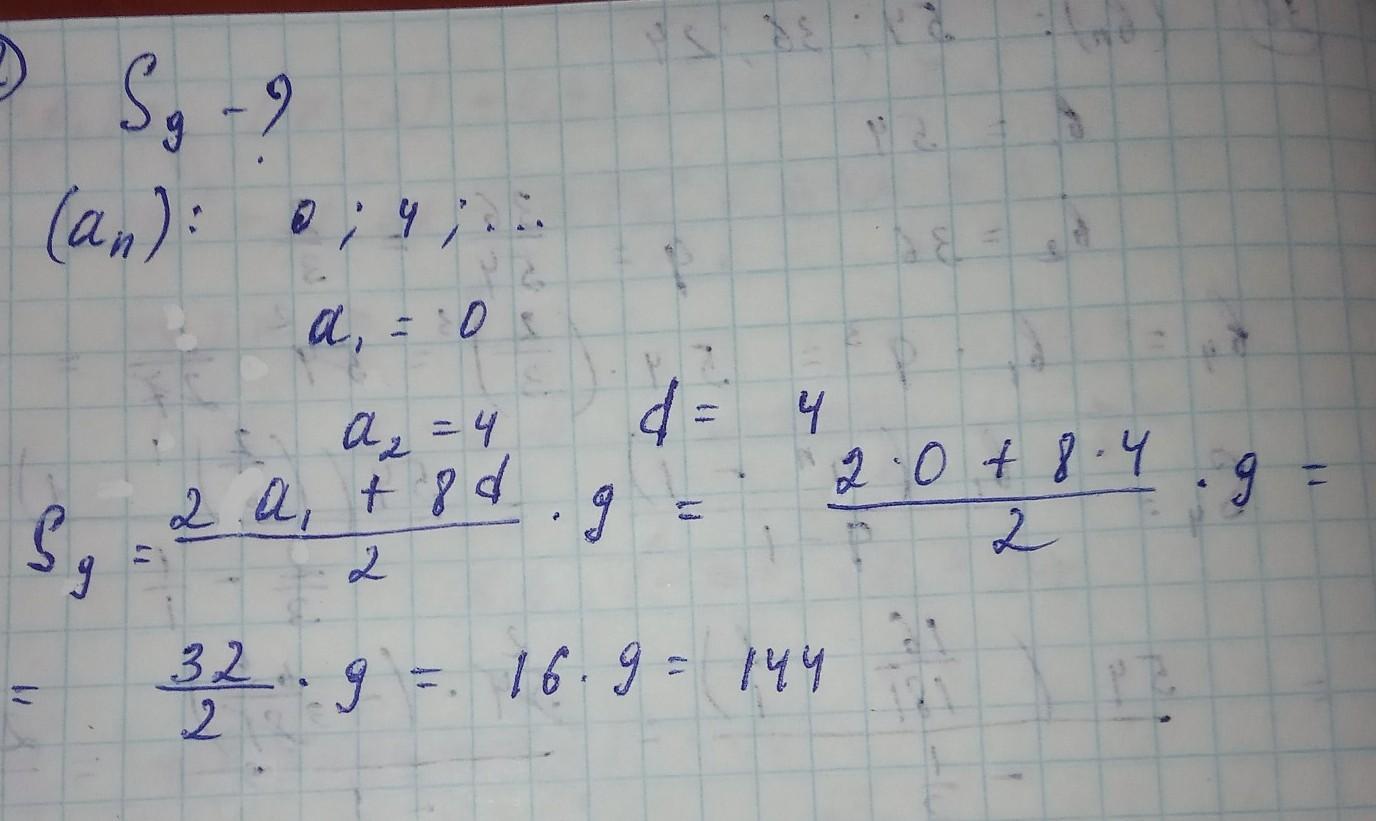 S₉ - ?
(aₙ): 0; 4; ...
a₁ = 0
a₂ = 4 d = 4
S₉ = (2a₁ + 8d)/2 · 9 = (2·0 + 8·4)/2 · 9 =
= 32/2 · 9 = 16 · 9 = 144